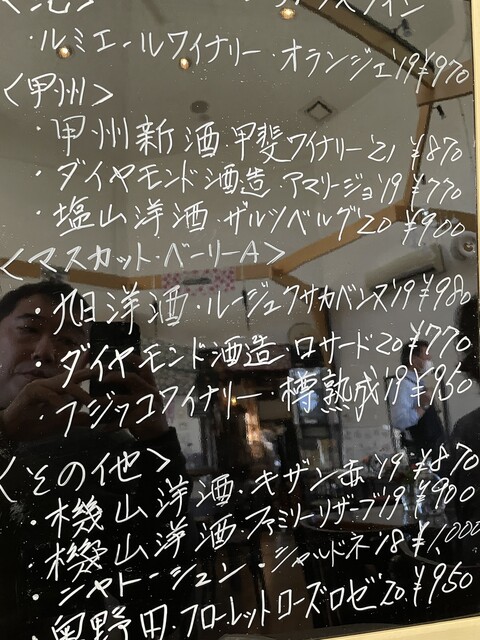 ・ルミエールワイナリー・オランジェ'19 ¥970
<甲州>
・甲州新酒・甲斐ワイナリー'21 ¥870
・ダイヤモンド酒造・アマリージョ'19 ¥770
・塩山洋酒・ザルツベルグ'20 ¥900
<マスカット・ベーリーA>
・旭洋酒・ルージュクサカベンヌ'19 ¥980
・ダイヤモンド酒造・ロサード'20 ¥770
・フジッコワイナリー・樽熟成'19 ¥950
<その他>
・機山洋酒・キザン赤'19 ¥870
・機山洋酒・ファミリーリザーブ'19 ¥900
・シャトージュン・シャルドネ'18 ¥1,000
・奥野田・フローレットローズロゼ'20 ¥950